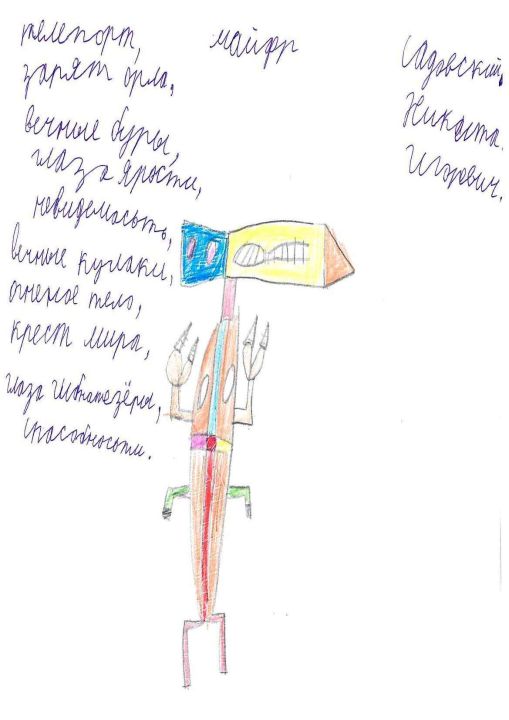 телепорт,
зарят орла,
вечные буры,
глаза ярости,
невидемасть,
вечные кулаки,
огненое тело,
крест мира,
глаза
способности.
майфр
Садовский,
Никита.
Игоревич.